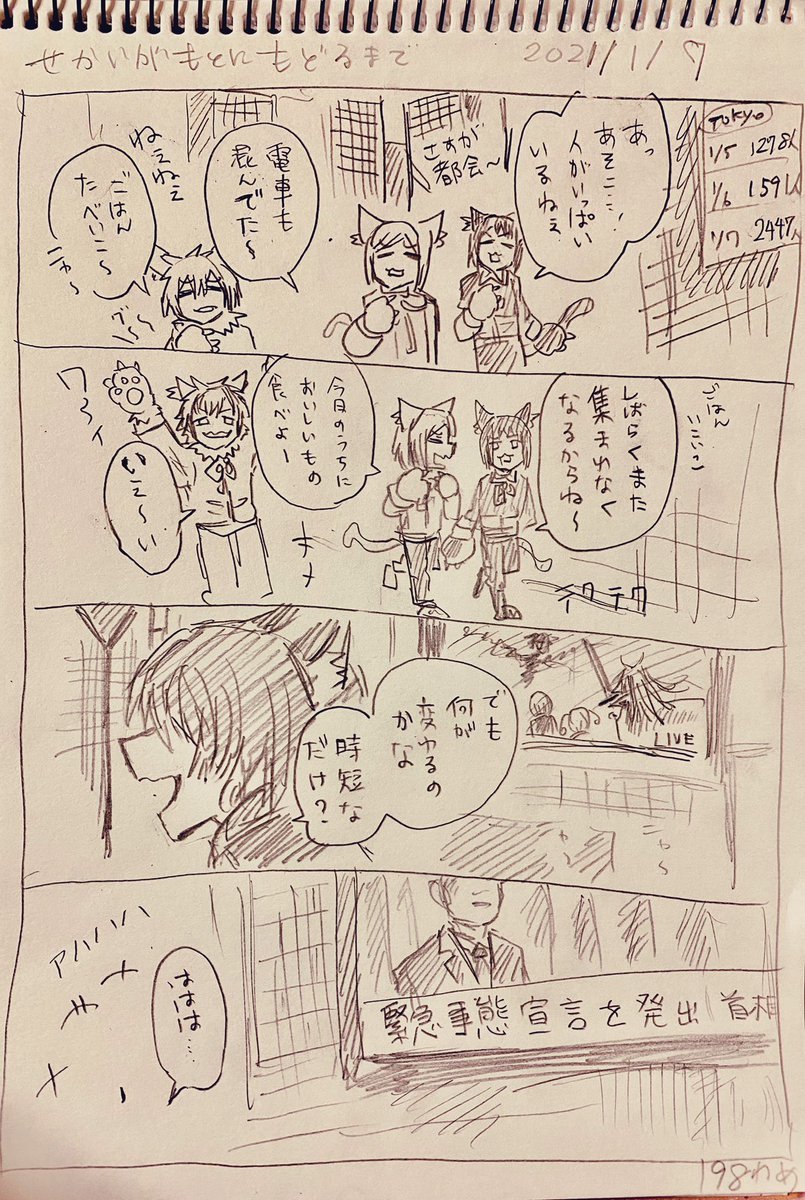 せかいがもとにもどるまで
2021/1/7
TOKYO
1/5 1278人
1/6 1591人
1/7 2447人
あっ
あそこ…!
人がいっぱい
いるねぇ
さすが
都会〜
電車も
混んでた〜
ねぇねぇ
ごはん
たべいこ〜
ニャ〜
グ〜
ごはん
いこいこ
しばらくまた
集まれなく
なるからね〜
今日のうちに
おいしいもの
食べよー
いぇ〜い
ワーイ
キャ
テクテク
LIVE
でも
何が
変わるの
かな
時短な
だけ?
ニャ〜
緊急事態宣言を発出 首相
ははは…
アハハハ
198わめ